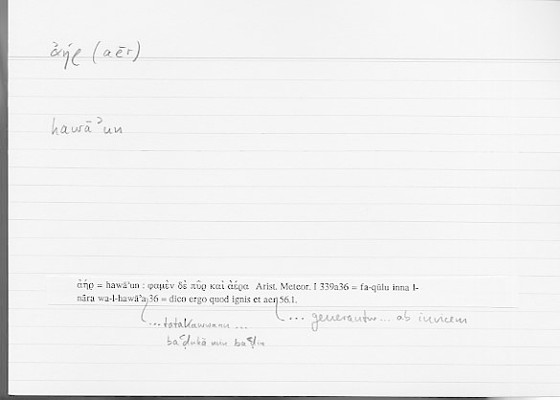 ἀήρ (aēr)
hawāʾun
ἀήρ = hawāʾun : φαμὲν δὲ πῦρ καὶ ἀέρα Arist. Meteor. I 339a36 = fa-qūlu inna l-
nāra wa-l-hawāʾa 36 = dico ergo quod ignis et aer 56.1.
... generantur ... ab invicem
... tatakawwanu ...
baʿḍuhā min baʿḍin